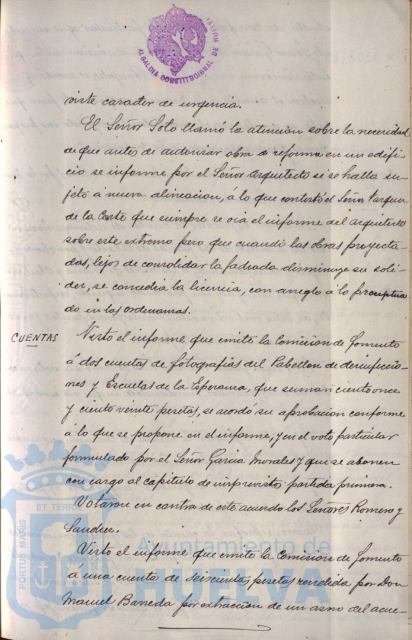 ALCALDIA CONSTITUCIONAL DE HUELVA
viste caracter de urgencia.
El Señor Soto llamó la atención sobre la necesidad
de que antes de autorizar obra de reforma en un edifi-
cio se informe por el Señor Arquitecto si se halla su-
jeto á nueva alineacion, á lo que contestó el Señor Vazquez
de la Corte que siempre se oia el informe del arquitecto
sobre este extremo pero que cuando las obras proyecta-
das, lejos de consolidar la fachada disminuye su soli-
dez, se concedia la licencia, con arreglo á lo preceptua-
do en las ordenanzas.
CUENTAS
Visto el informe que emite la Comision de Fomento
á dos cuentas de fotografias del Pabellon de desinfeccio-
nes y Escuelas de la Esperanza, que suman ciento once
y ciento veinte pesetas, se acordó su aprobacion conforme
á lo que se propone en el informe, y en el voto particular
formulado por el Señor Garcia Morales y que se abonen
con cargo al capitulo de imprevistos partida primera.
Votaron en contra de este acuerdo los Señores Romero y
Visto el informe que emite la Comision de Fomento
á una cuenta de seiscientas pesetas rendida por Don
Manuel Barreda por extraccion de un asno del acue-
ET TERRAE
PORTUS MARIS
Ayuntamiento de
HUELVA